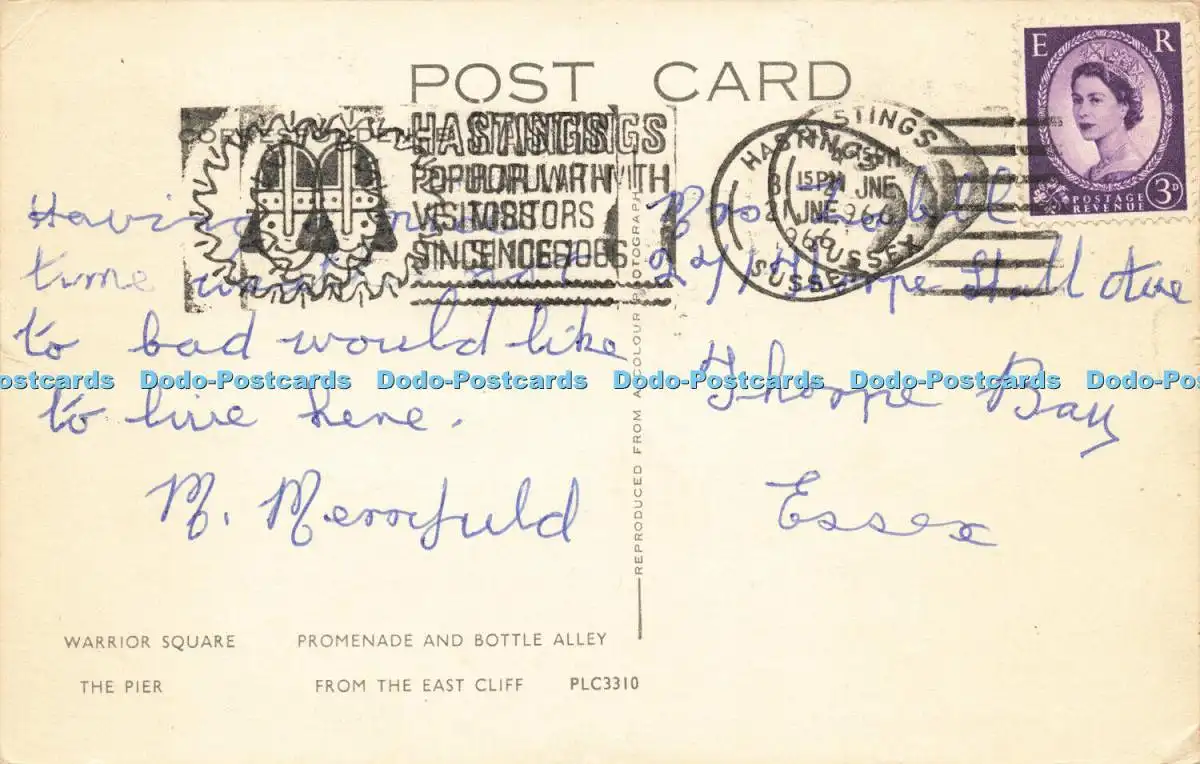 POST CARD
CORRESPONDENCE
HASTINGS
POPULAR WITH
VISITORS
SINCE 1066
HASTINGS
15 PM
JNE
1966
SUSSEX
E R
POSTAGE
REVENUE
3D
Having
time
to bad would like
to live here.
M. Merryfuld
Thorpe Hall Ave
Thorpe Bay
Essex
REPRODUCED FROM A COLOUR PHOTOGRAPH
Dodo-Postcards Dodo-Postcards Dodo-Postcards Dodo-Postcards Dodo-Postcards
WARRIOR SQUARE PROMENADE AND BOTTLE ALLEY
THE PIER FROM THE EAST CLIFF PLC3310